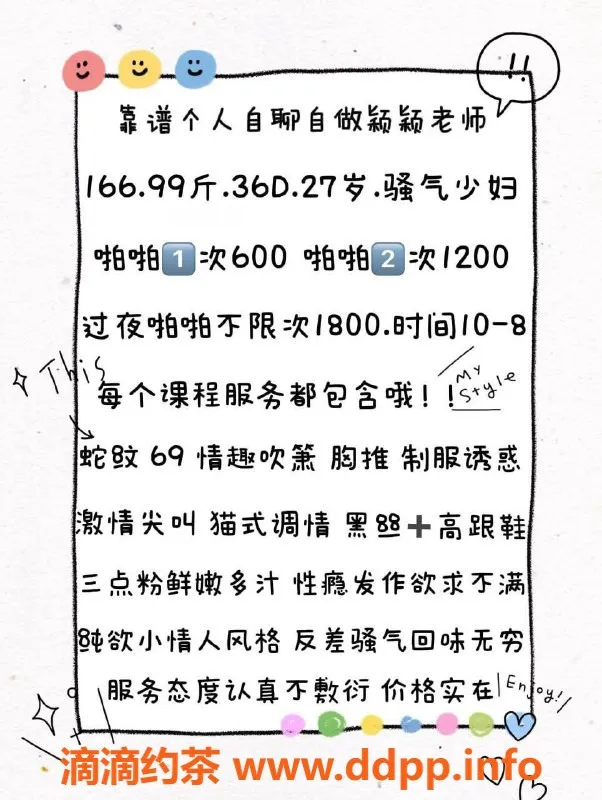 !!
靠谱个人自聊自做颖颖老师
166.99斤.36D.27岁.骚气少妇
啪啪1️⃣次600 啪啪2️⃣次1200
过夜啪啪不限次1800.时间10-8
This
每个课程服务都包含哦！！
My Style
蛇纹 69 情趣吹箫 胸推 制服诱惑
激情尖叫 猫式调情 黑丝➕高跟鞋
三点粉鲜嫩多汁 性瘾发作欲求不满
纯欲小情人风格 反差骚气回味无穷
服务态度认真不敷衍 价格实在
Enjoy!
滴滴约茶 www.ddpp.info